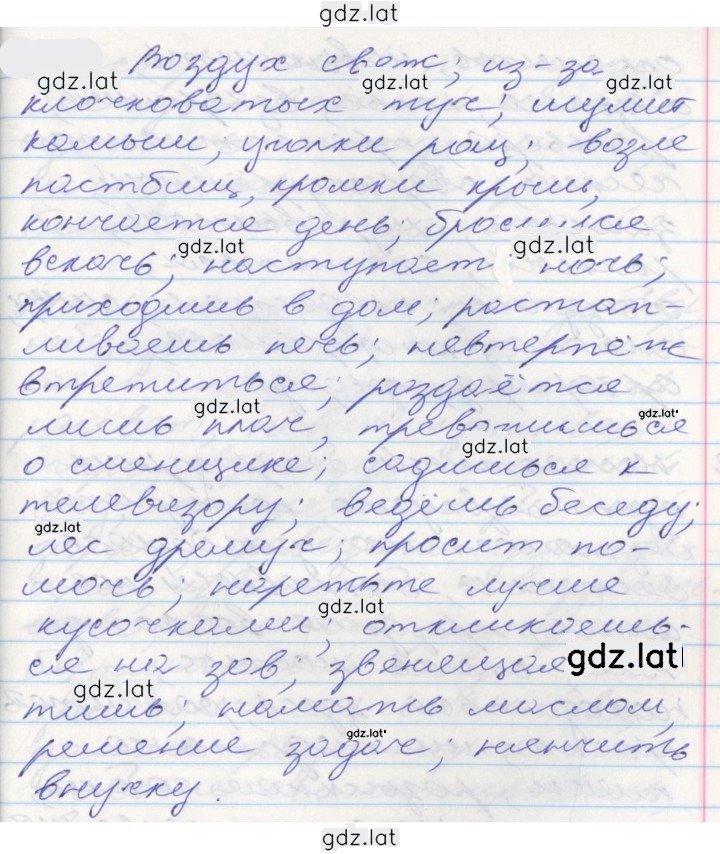 gdz.lat
Воздух свеж; из-за
gdz.lat gdz.lat gdz.lat
клочковатых туч; шумит
камыш; уголки рощ; возле
пастбищ, кромки крыш,
кончается день; бросился
gdz.lat gdz.lat
вскачь; наступает ночь;
приходишь в дом; растап-
ливаешь печь; невтерпёж
встретиться; раздаётся
gdz.lat gdz.lat
лишь плач, тревожишься
gdz.lat
о сменщике; садишься к
телевизору; ведёшь беседу;
gdz.lat
лес дремуч; просит по-
мочь; нарежьте лучше
gdz.lat
кусочками; откликаешь-
ся на зов, звенящая
gdz.lat
gdz.lat
тишь, намажь маслом,
gdz.lat
решение задач; нянчить
внучку.
gdz.lat